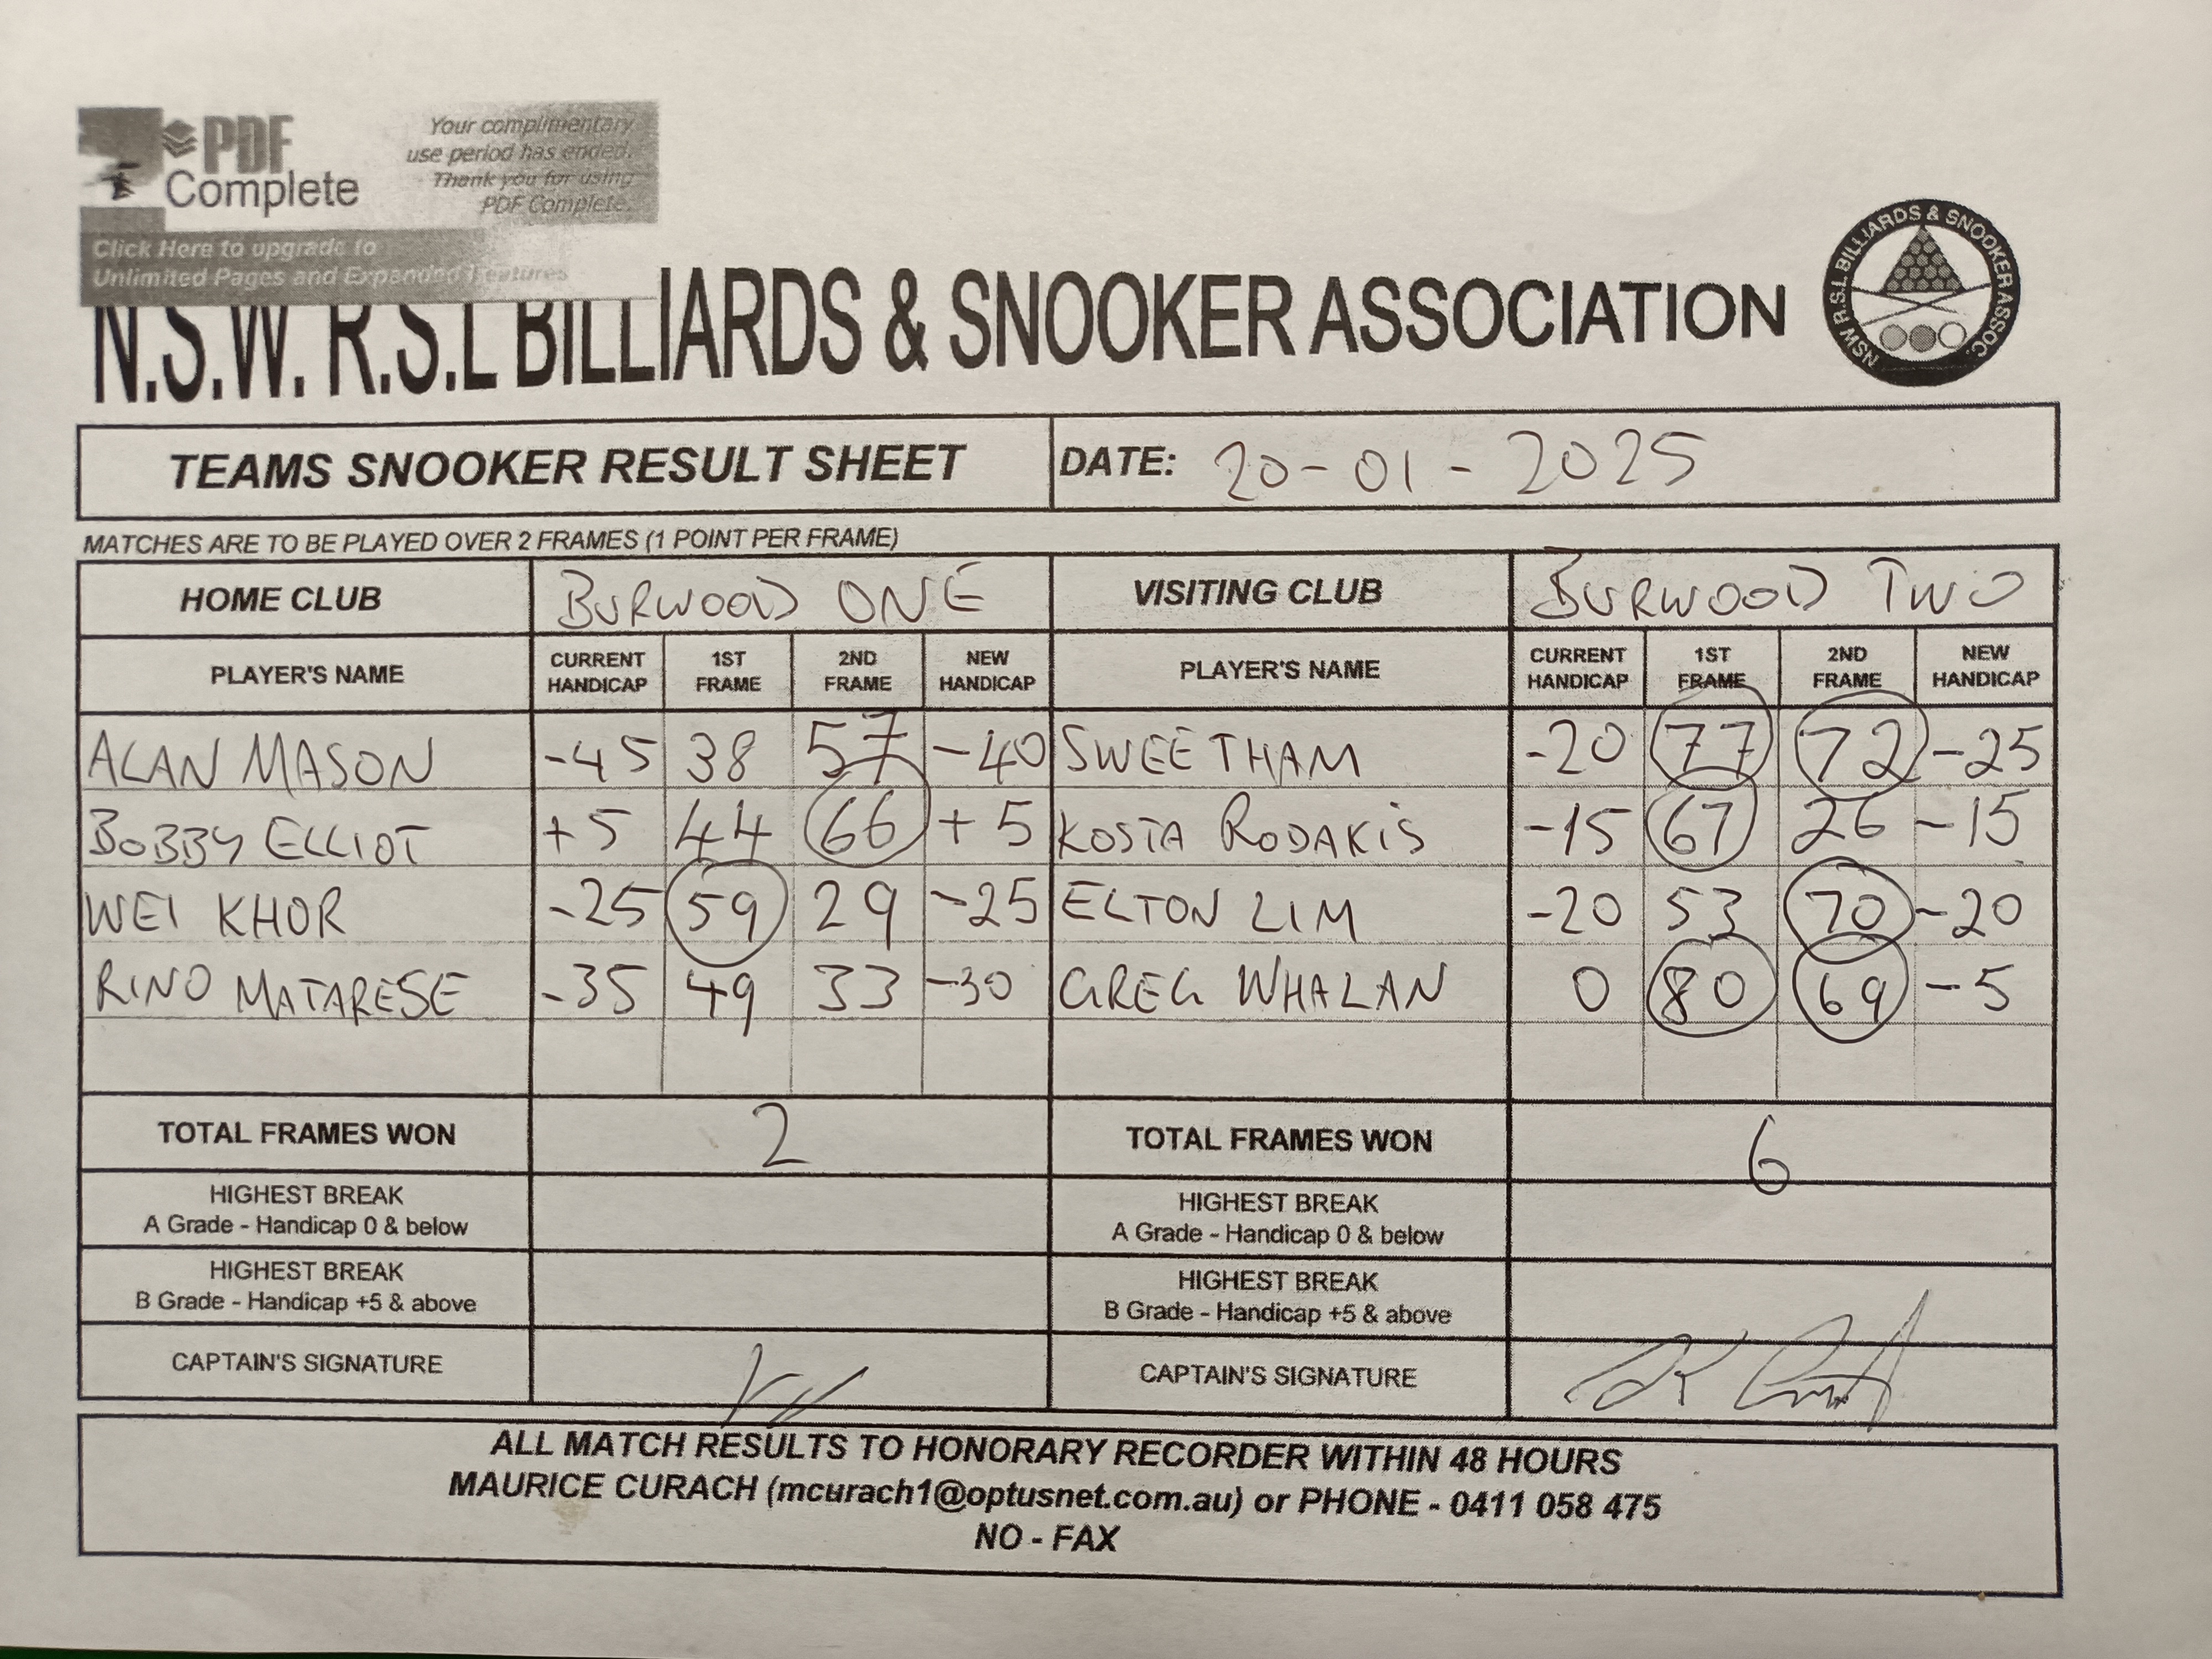 PDF
Complete
Your complimentary
use period has ended.
Thank you for using
PDF Complete.
Click Here to upgrade to
Unlimited Pages and Expanded Features
N.S.W. R.S.L BILLIARDS & SNOOKER ASSOCIATION
NSW R.S.L BILLIARDS & SNOOKER ASSOC.
TEAMS SNOOKER RESULT SHEET DATE: 20-01-2025
MATCHES ARE TO BE PLAYED OVER 2 FRAMES (1 POINT PER FRAME)
HOME CLUB BURWOOD ONE VISITING CLUB BURWOOD TWO
PLAYER'S NAME CURRENT HANDICAP 1ST FRAME 2ND FRAME NEW HANDICAP PLAYER'S NAME CURRENT HANDICAP 1ST FRAME 2ND FRAME NEW HANDICAP
ALAN MASON -45 38 57 -40 SWEE THAM -20 77 72 -25
BOBBY ELLIOT +5 44 66 +5 KOSTA RODAKIS -15 67 26 -15
WEI KHOR -25 59 29 -25 ELTON LIM -20 53 70 -20
RINO MATARESE -35 49 33 -30 GREG WHALAN 0 80 69 -5
TOTAL FRAMES WON 2 TOTAL FRAMES WON 6
HIGHEST BREAK HIGHEST BREAK
A Grade - Handicap 0 & below A Grade - Handicap 0 & below
HIGHEST BREAK HIGHEST BREAK
B Grade - Handicap +5 & above B Grade - Handicap +5 & above
CAPTAIN'S SIGNATURE CAPTAIN'S SIGNATURE
ALL MATCH RESULTS TO HONORARY RECORDER WITHIN 48 HOURS
MAURICE CURACH (mcurach1@optusnet.com.au) or PHONE - 0411 058 475
NO - FAX